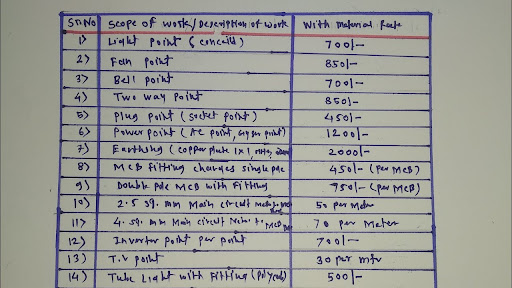 Sr.No Scope of work/Description of work With Material Rate
1) Light Point (conceild) 700/-
2) Fan point 850/-
3) Bell point 700/-
4) Two way Point 850/-
5) Plug Point (socket point) 450/-
6) Power point (AC point, Gyser point) 1200/-
7) Earthing (copper plate 1x1, 2000/-
8) MCB fitting charges single pole 450/- (per MCB)
9) Double pole MCB with Fitting 950/- (per MCB)
10) 2.5 sq. mm Main circuit 50 per Metre
11) 4. sq. mm Main circuit 70 per Meter
12) Invertor point per point 700/-
13) T.V point 30 per mtr
14) Tube Light with Fitting (Polycab) 500/-